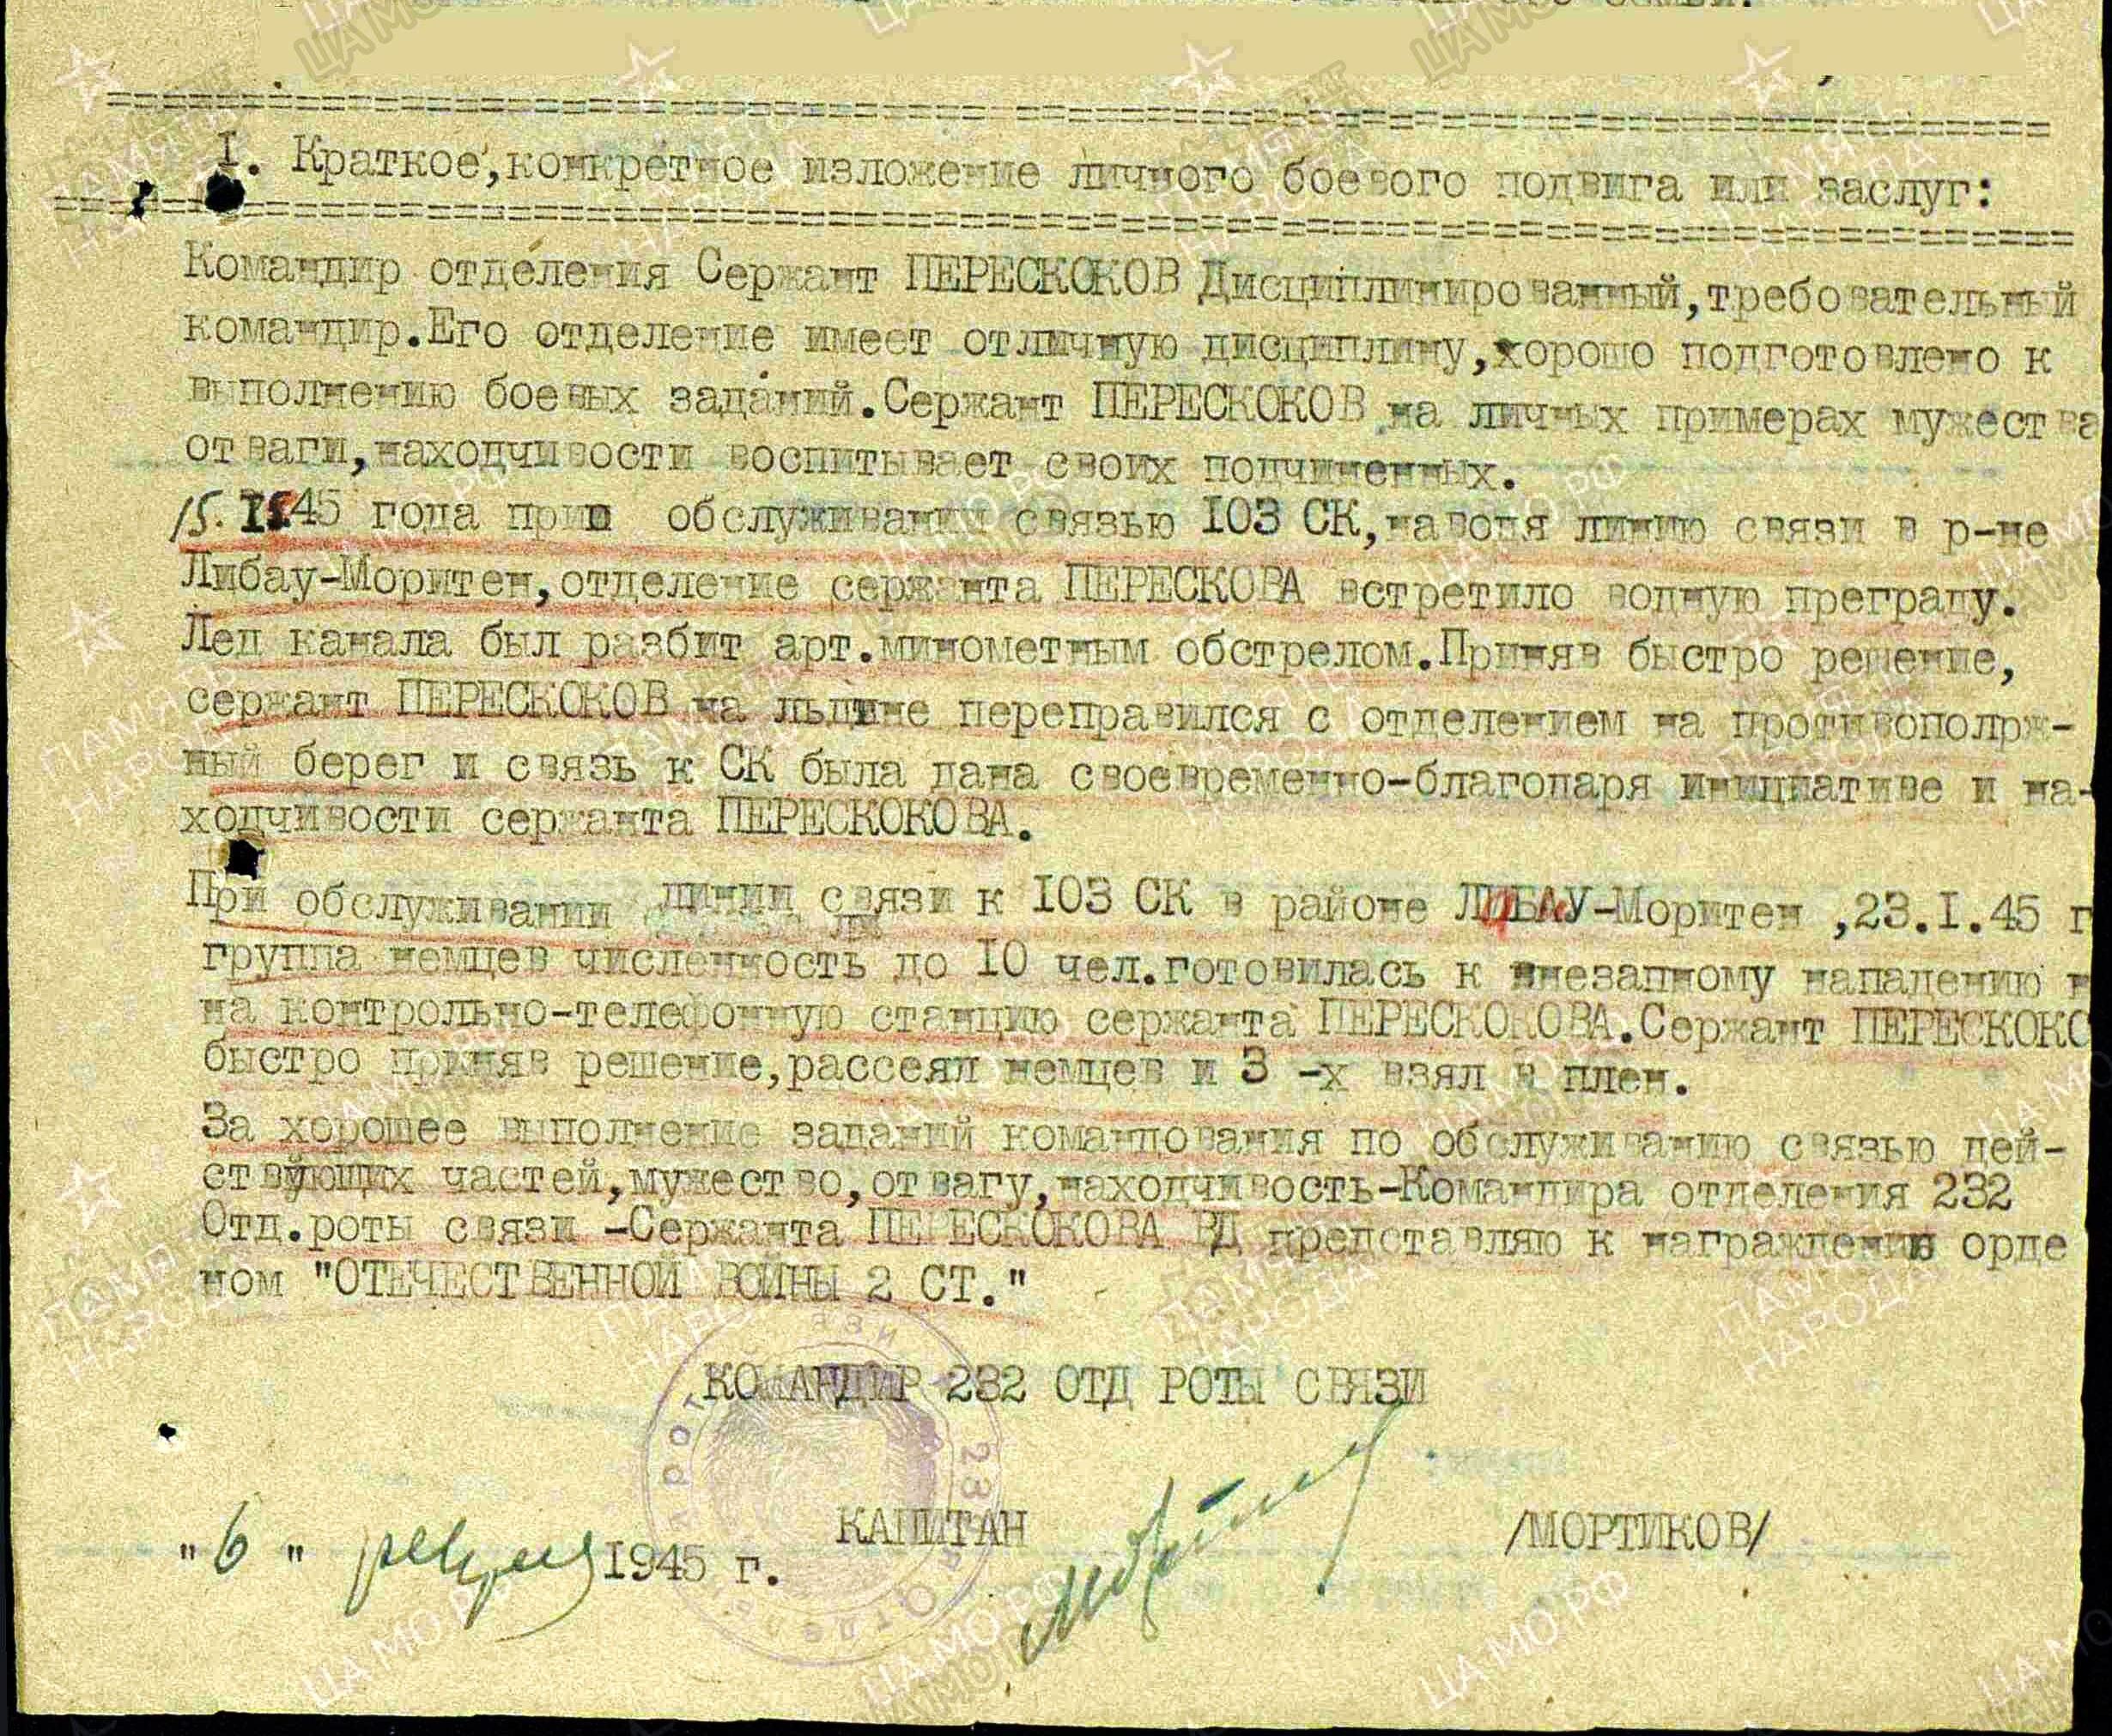 I. Краткое,конкретное изложение личного боевого подвига или заслуг:
Командир отделения Сержант ПЕРЕСКОКОВ Дисциплинированный,требовательный
командир.Его отделение имеет отличную дисциплину,хорошо подготовлено к
выполнению боевых заданий.Сержант ПЕРЕСКОКОВ на личных примерах мужества
отваги,находчивости воспитывает своих подчиненных.
15.I.45 года при обслуживании связью 103 СК,наводя линию связи в р-не
Либау-Моритен,отделение сержанта ПЕРЕСКОВА встретило водную преграду.
Лед канала был разбит арт.минометным обстрелом.Приняв быстро решение,
сержант ПЕРЕСКОКОВ на льдине переправился с отделением на противополож-
ный берег и связь к СК была дана своевременно-благодаря инициативе и на-
ходчивости сержанта ПЕРЕСКОКОВА.
При обслуживании линии связи к 103 СК в районе ЛИБАУ-Моритен ,23.I.45 г
группа немцев численность до 10 чел.готовилась к внезапному нападению н
на контрольно-телефонную станцию сержанта ПЕРЕСКОКОВА.Сержант ПЕРЕСКОКО
быстро приняв решение,рассеял немцев и 3 -х взял в плен.
За хорошее выполнение заданий командования по обслуживанию связью дей-
ствующих частей,мужество,отвагу,находчивость-Командира отделения 232
Отд.роты связи -Сержанта ПЕРЕСКОКОВА ВД представляю к награждению орде
ном "ОТЕЧЕСТВЕННОЙ ВОЙНЫ 2 СТ."
КОМАНДИР 232 ОТД РОТЫ СВЯЗИ
КАПИТАН /МОРТИКОВ/
"6" февраля 1945 г.
ПАМЯТЬ НАРОДА
ЦАМО РФ